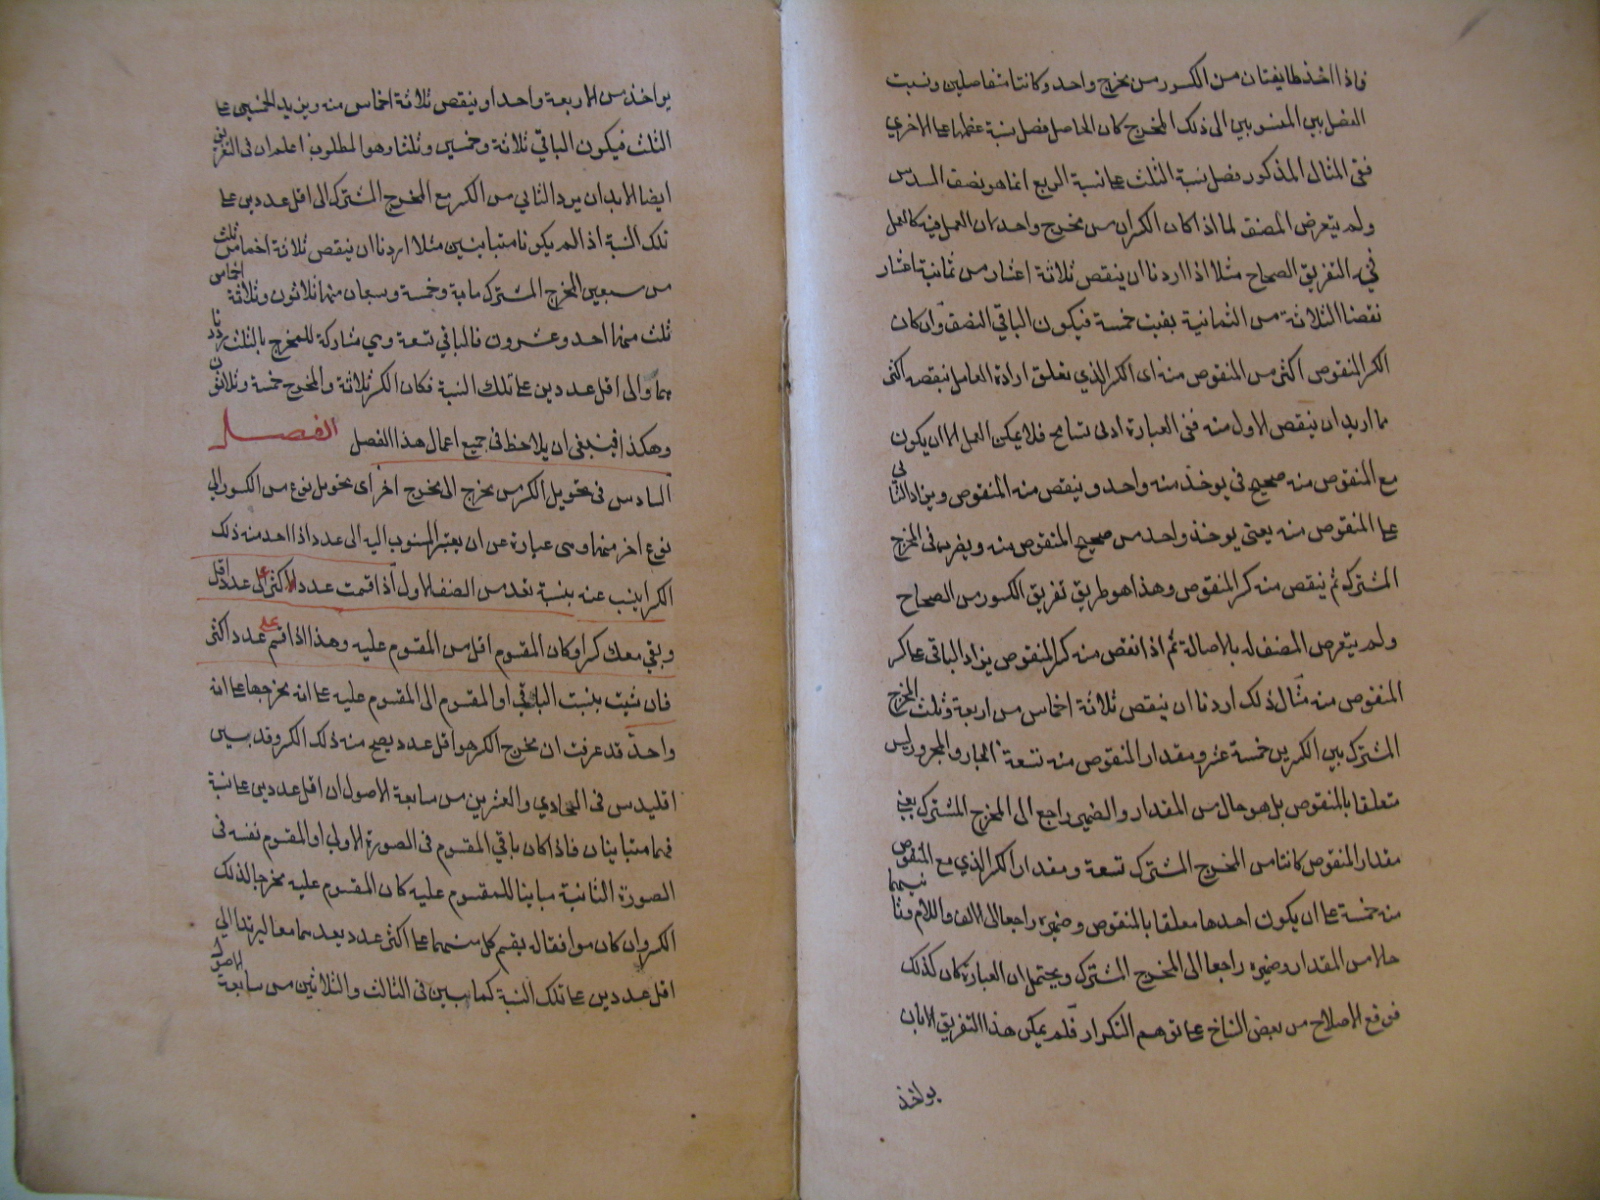 فاذا اخذ طايفتان من الكسور من مخرج واحد وكانتا متفاصلين ونسبت
الفضل بين المنسوبين الى ذلك المخرج كان الحاصل فضل نسبة عظمها على الاخرى
ففى المثال المذكور فضل نسبة الثلث على نسبة الربع انما هو نصف السدس
ولم يتعرض المصنف لما اذا كان الكسران من مخرج واحد لان العمل فيه كالعمل
فى التفريق الصحاح مثلا اذا اردنا ان ينقص ثلاثة اعشار من ثمانية اعشار
نقصنا الثلاثة من الثمانية بقيت خمسة فيكون الباقي النصف وان كان
الكسر المنقوص اكثر من المنقوص منه اى الكسر الذي تعلق ارادة العامل بنقصه اكثر
مما اريد ان ينقص الاول منه ففى العبارة ادنى تسامح فلا يمكن العمل الا ان يكون
مع المنقوص منه صحيح فيوخذ منه واحد وينقص منه المنقوص ويزاد الباقي
على المنقوص منه يعنى يوخذ واحد من صحيح المنقوص منه ويضرب فى المخرج
المشترك ثم ينقص منه كسر المنقوص وهذا هو طريق تفريق الكسور من الصحاح
ولم يتعرض المصنف له بالاصالة ثم اذا نقص منه كسر المنقوص يزاد الباقى على كسر
المنقوص منه مثال ذلك اردنا ان ينقص ثلاثة اخماس من اربعة وثلث المخرج
المشترك بين الكسرين خمسة عشر ومقدار المنقوص منه تسعة الجار والمجرور ليس
متعلقا بالمنقوص بل هو حال من المقدار والضمير راجع الى المخرج المشترك يعني
مقدار المنقوص كائنا من المخرج المشترك تسعة ومقدار الكسر الذي مع المنقوص
منه خمسة على ان يكون احدها معلقا بالمنقوص وضميره راجعا الى الالف واللام وثانيهما
حالا من المقدار وضميره راجعا الى المخرج المشترك ويحتمل ان العبارة كان كذلك
فوقع الاصلاح من بعض النساخ على توهم التكرار فلم يمكن هذا التفريق الا بان
يواخذ
يواخذ من الاربعة واحد او ينقص ثلاثة اخماس منه ويزيد الخمسين على
الثلث فيكون الباقي ثلاثة وخمسين وثلثا وهو المطلوب اعلم ان فى التفريق
ايضا لا بد ان يرد الثاني من الكسر مع المخرج المشترك الى اقل عددين على
تلك النسبة اذ الم يكونا متباينين مثلا اردنا ان ينقص ثلاثة اخماس ثلث
من سبعين المخرج المشترك ماية وخمسة وسبعان منها ثلاثون وثلاثة اخماس
ثلث منها احد وعشرون فالباقي تسعة وهي مشاركة للمخرج بالثلث رددنا
هما والى اقل عددين على تلك النسبة فكان الكسر ثلاثة والمخرج خمسة وثلاثون
وهكذا فينبغى ان يلاحظ فى جميع اعمال هذا الفصل الفصل
السادس فى تحويل الكسر من مخرج الى مخرج اخر اى تحويل نوع من الكسور الى
نوع اخر منها وهى عبارة عن ان يعتبر المنسوب اليه الى عدد اذا احد منه ذلك
الكسر اينسب عنه بنسبة تقدس الصنف الاول اذا قسمت عددا اكثر على عدد اقل
وبقي معك كسر او كان المقسوم اقل من المقسوم عليه وهذا اذا قسم عدد على عدد اكثر
فان شيت بنسبت الباقي او المقسوم الى المقسوم عليه على انه مخرجها على انه
واحد قد عرفت ان مخرج الكسر هو اقل عدد يصح منه ذلك الكسر وقد بين
اقليدس فى الحادي والعشرين من سابعة الاصول ان اقل عددين على نسبة
فهما متباينان فاذا كان باقي المقسوم فى الصورة الاولى او المقسوم نفسه فى
الصورة الثانية مباينا للمقسوم عليه كان المقسوم عليه مخرجا لذلك
الكسر وان كان موافقا له يقسم كل منهما على اكثر عدد يعدهما معا ليرتدا الى
اقل عددين على تلك النسبة كما بين فى الثالث والثلاثين من سابعة الاصول